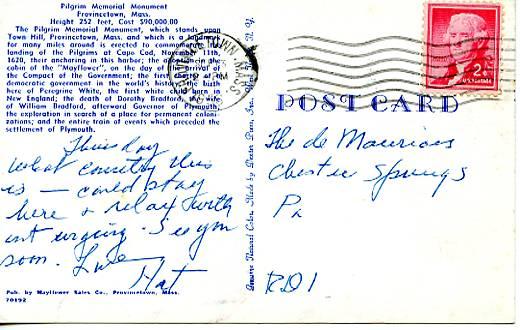 Pilgrim Memorial Monument
Provincetown, Mass.
Height 252 feet, Cost $90,000.00
The Pilgrim Memorial Monument, which stands upon
Town Hill, Provincetown, Mass. and which is a landmark
for many miles around is erected to commemorate the
landing of the Pilgrims at Cape Cod, November 11th,
1620, their anchoring in this harbor; the adoption in the
cabin of the "Mayflower", on the day of their arrival of
the Compact of the Government; the first charter of
democratic government in the world's history; the birth
here of Peregrine White, the first white child born in
New England; the death of Dorothy Bradford, the wife
of William Bradford, afterward Governor of Plymouth;
the exploration in search of a place for permanent coloni-
zations; and the entire train of events which preceded the
settlement of Plymouth.
This day
what country this
is — could stay
here & relax with
out urging. See you
soon. Love
Hat
Pub. by Mayflower Sales Co., Provincetown, Mass.
70192
Genuine Natural Color Made by Dexter Press, Inc. N. Y.
MASS.
2¢
POST CARD
The de
Chester Springs
Pa
RD1